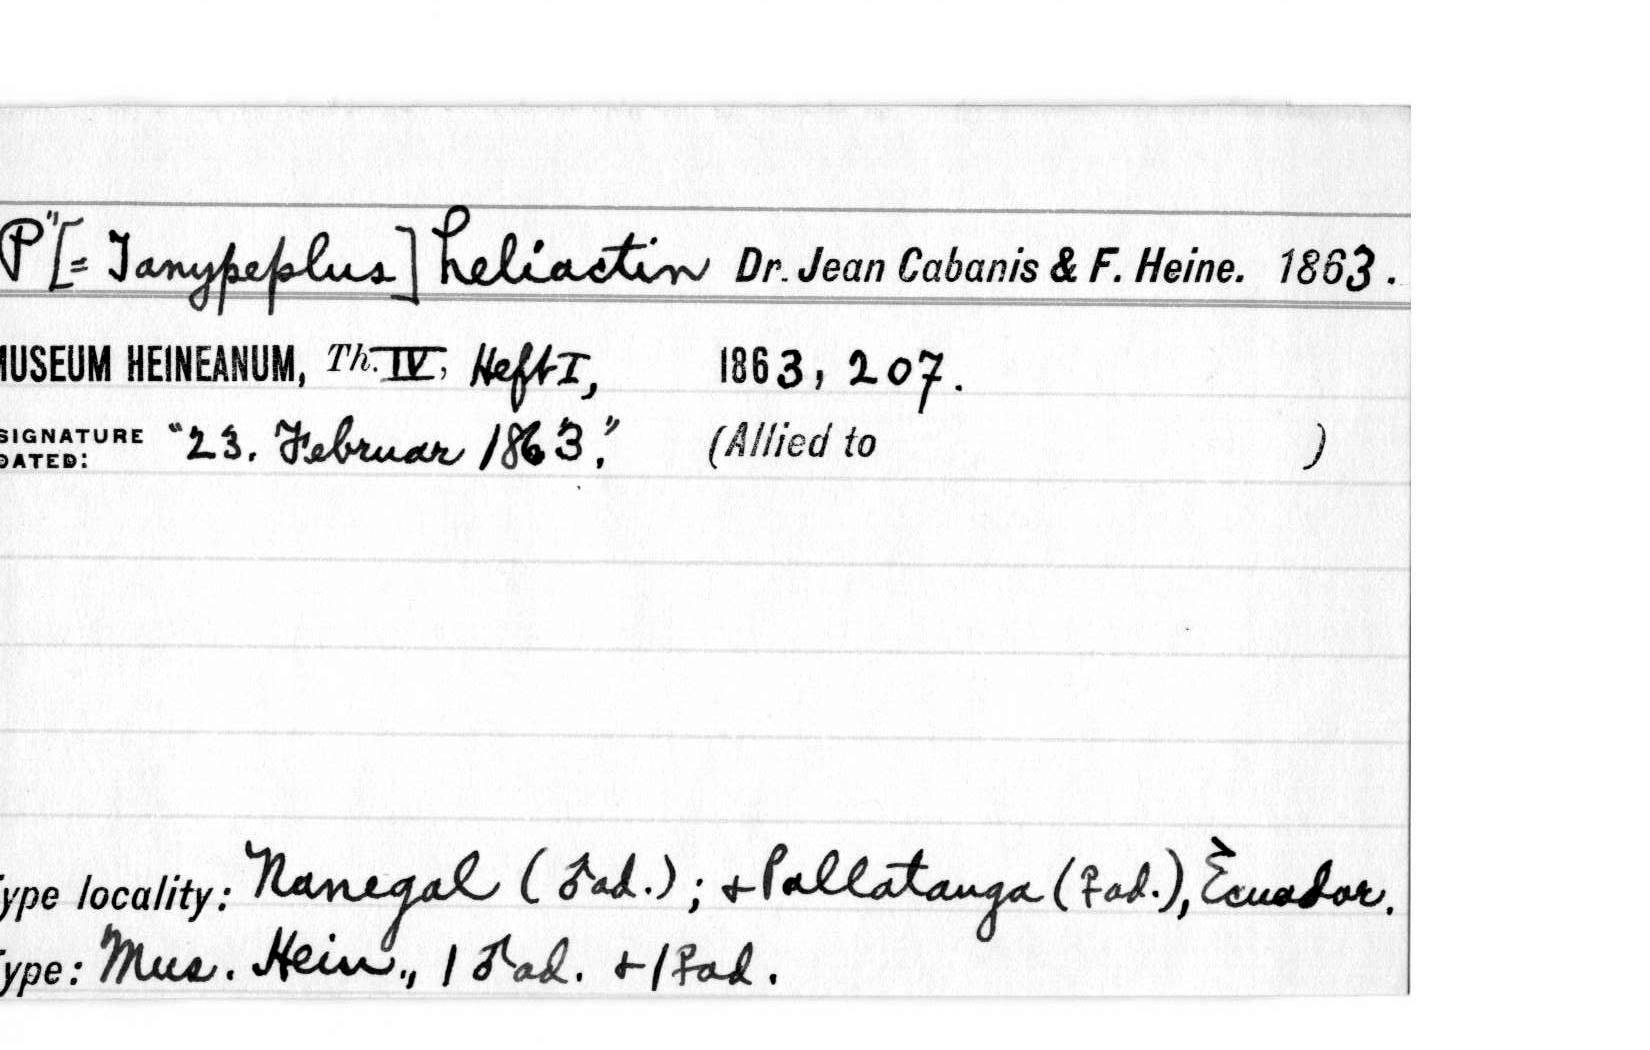 P" [= Tanypeplus] heliactin Dr. Jean Cabanis & F. Heine. 1863.
MUSEUM HEINEANUM, Th. IV, Heft I, 1863, 207.
SIGNATURE DATED: "23. Februar 1863." (Allied to )
Type locality: Nanegal (♂ad.); + Pallatanga (♀ad.), Ecuador.
Type: Mus. Hein., 1 ♂ad. + 1 ♀ad.